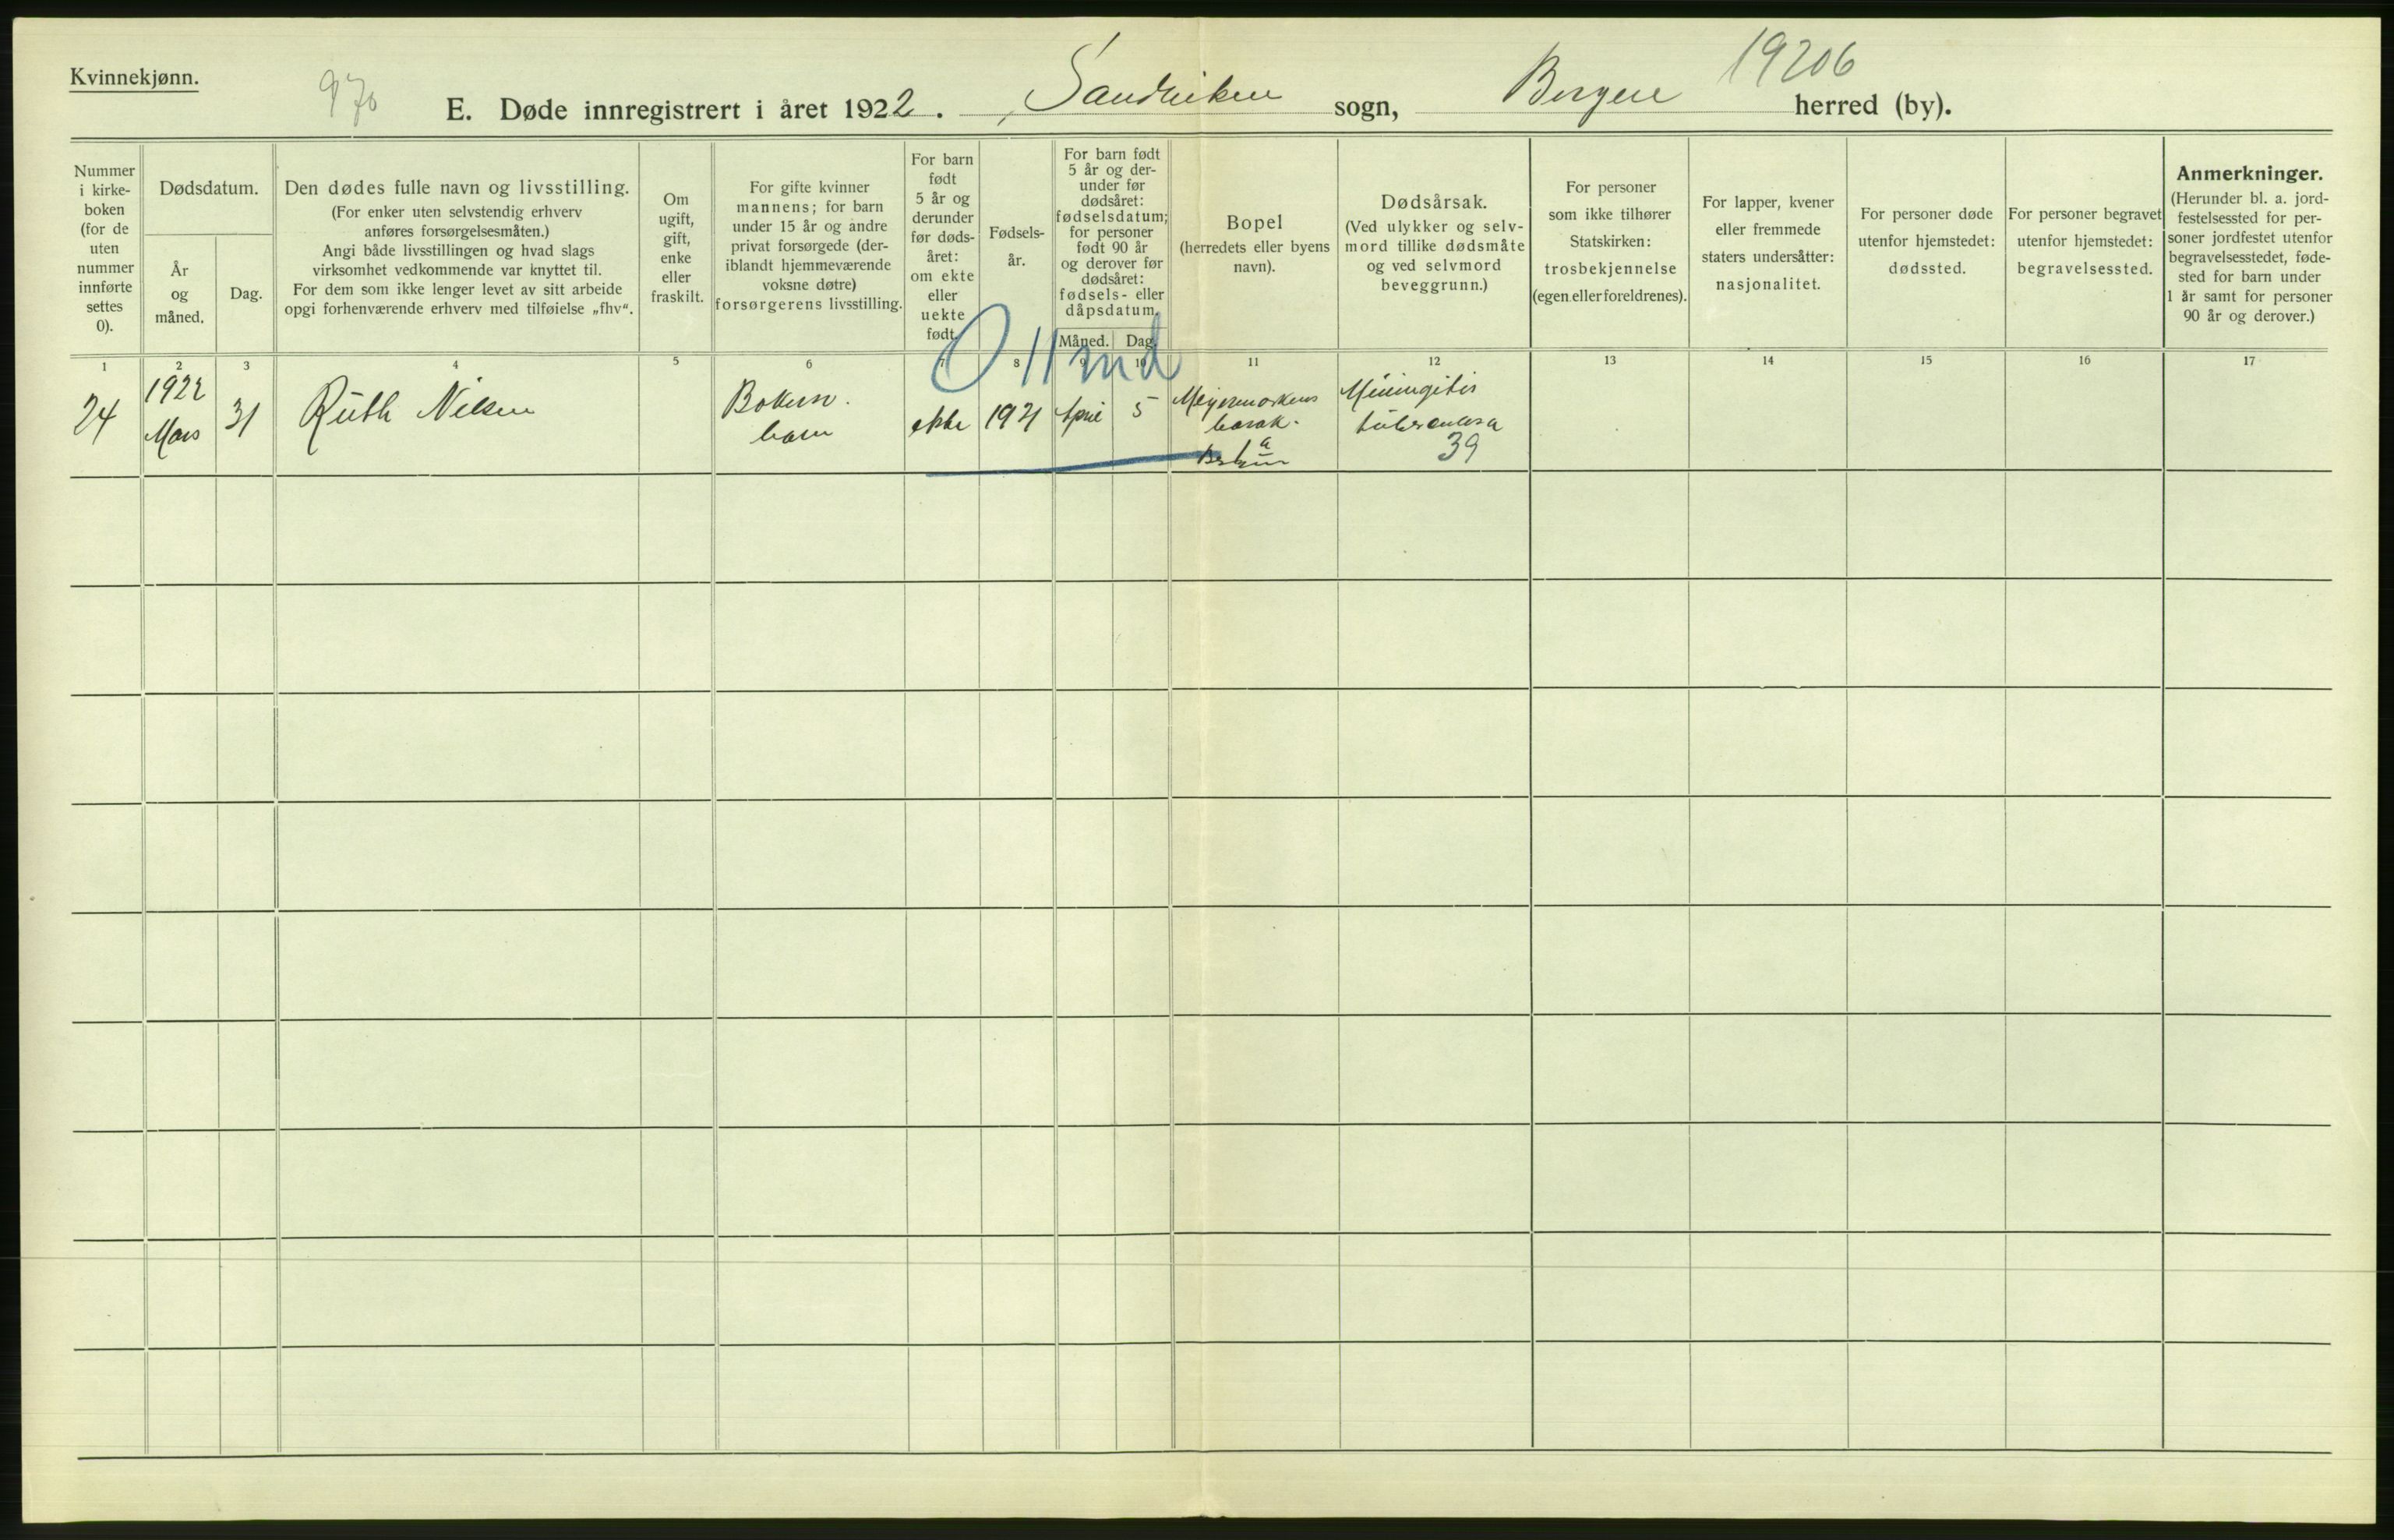 Kvinnekjønn.
970
19206
E. Døde innregistrert i året 1922. Sandviken sogn, Bergen herred (by).
Nummer
i kirke-
boken
(for de
uten
nummer
innførte
settes
0).
Dødsdatum.
År
og
måned.
Dag.
Den dødes fulle navn og livsstilling.
(For enker uten selvstendig erhverv
anføres forsørgelsesmåten.)
Angi både livsstillingen og hvad slags
virksomhet vedkommende var knyttet til.
For dem som ikke lenger levet av sitt arbeide
opgi forhenværende erhverv med tilføielse „fhv“.
Om
ugift,
gift,
enke
eller
fraskilt.
For gifte kvinner
mannens; for barn
under 15 år og andre
privat forsørgede (der-
iblandt hjemmeværende
voksne døtre)
forsørgerens livsstilling.
For barn
født
5 år og
derunder
før døds-
året:
om ekte
eller
uekte
født.
Fødsels-
år.
For barn født
5 år og der-
under før
dødsåret:
fødselsdatum;
for personer
født 90 år
og derover før
dødsåret:
fødsels- eller
dåpsdatum.
Måned.
Dag.
Bopel
(herredets eller byens
navn).
Dødsårsak.
(Ved ulykker og selv-
mord tillike dødsmåte
og ved selvmord
beveggrunn.)
For personer
som ikke tilhører
Statskirken:
trosbekjennelse
(egen eller foreldrenes).
For lapper, kvener
eller fremmede
staters undersåtter:
nasjonalitet.
For personer døde
utenfor hjemstedet:
dødssted.
For personer begravet
utenfor hjemstedet:
begravelsessted.
Anmerkninger.
(Herunder bl. a. jord-
festelsessted for per-
soner jordfestet utenfor
begravelsesstedet, føde-
sted for barn under
1 år samt for personer
90 år og derover.)
1 2 3 4 5 6 7 8 9 10 11 12 13 14 15 16 17
0 11 md
24
1922
Mars
31
Ruth Nilsen
barn
ekte
1921
April
5
barak.
Meningitis
tuberculosa
39